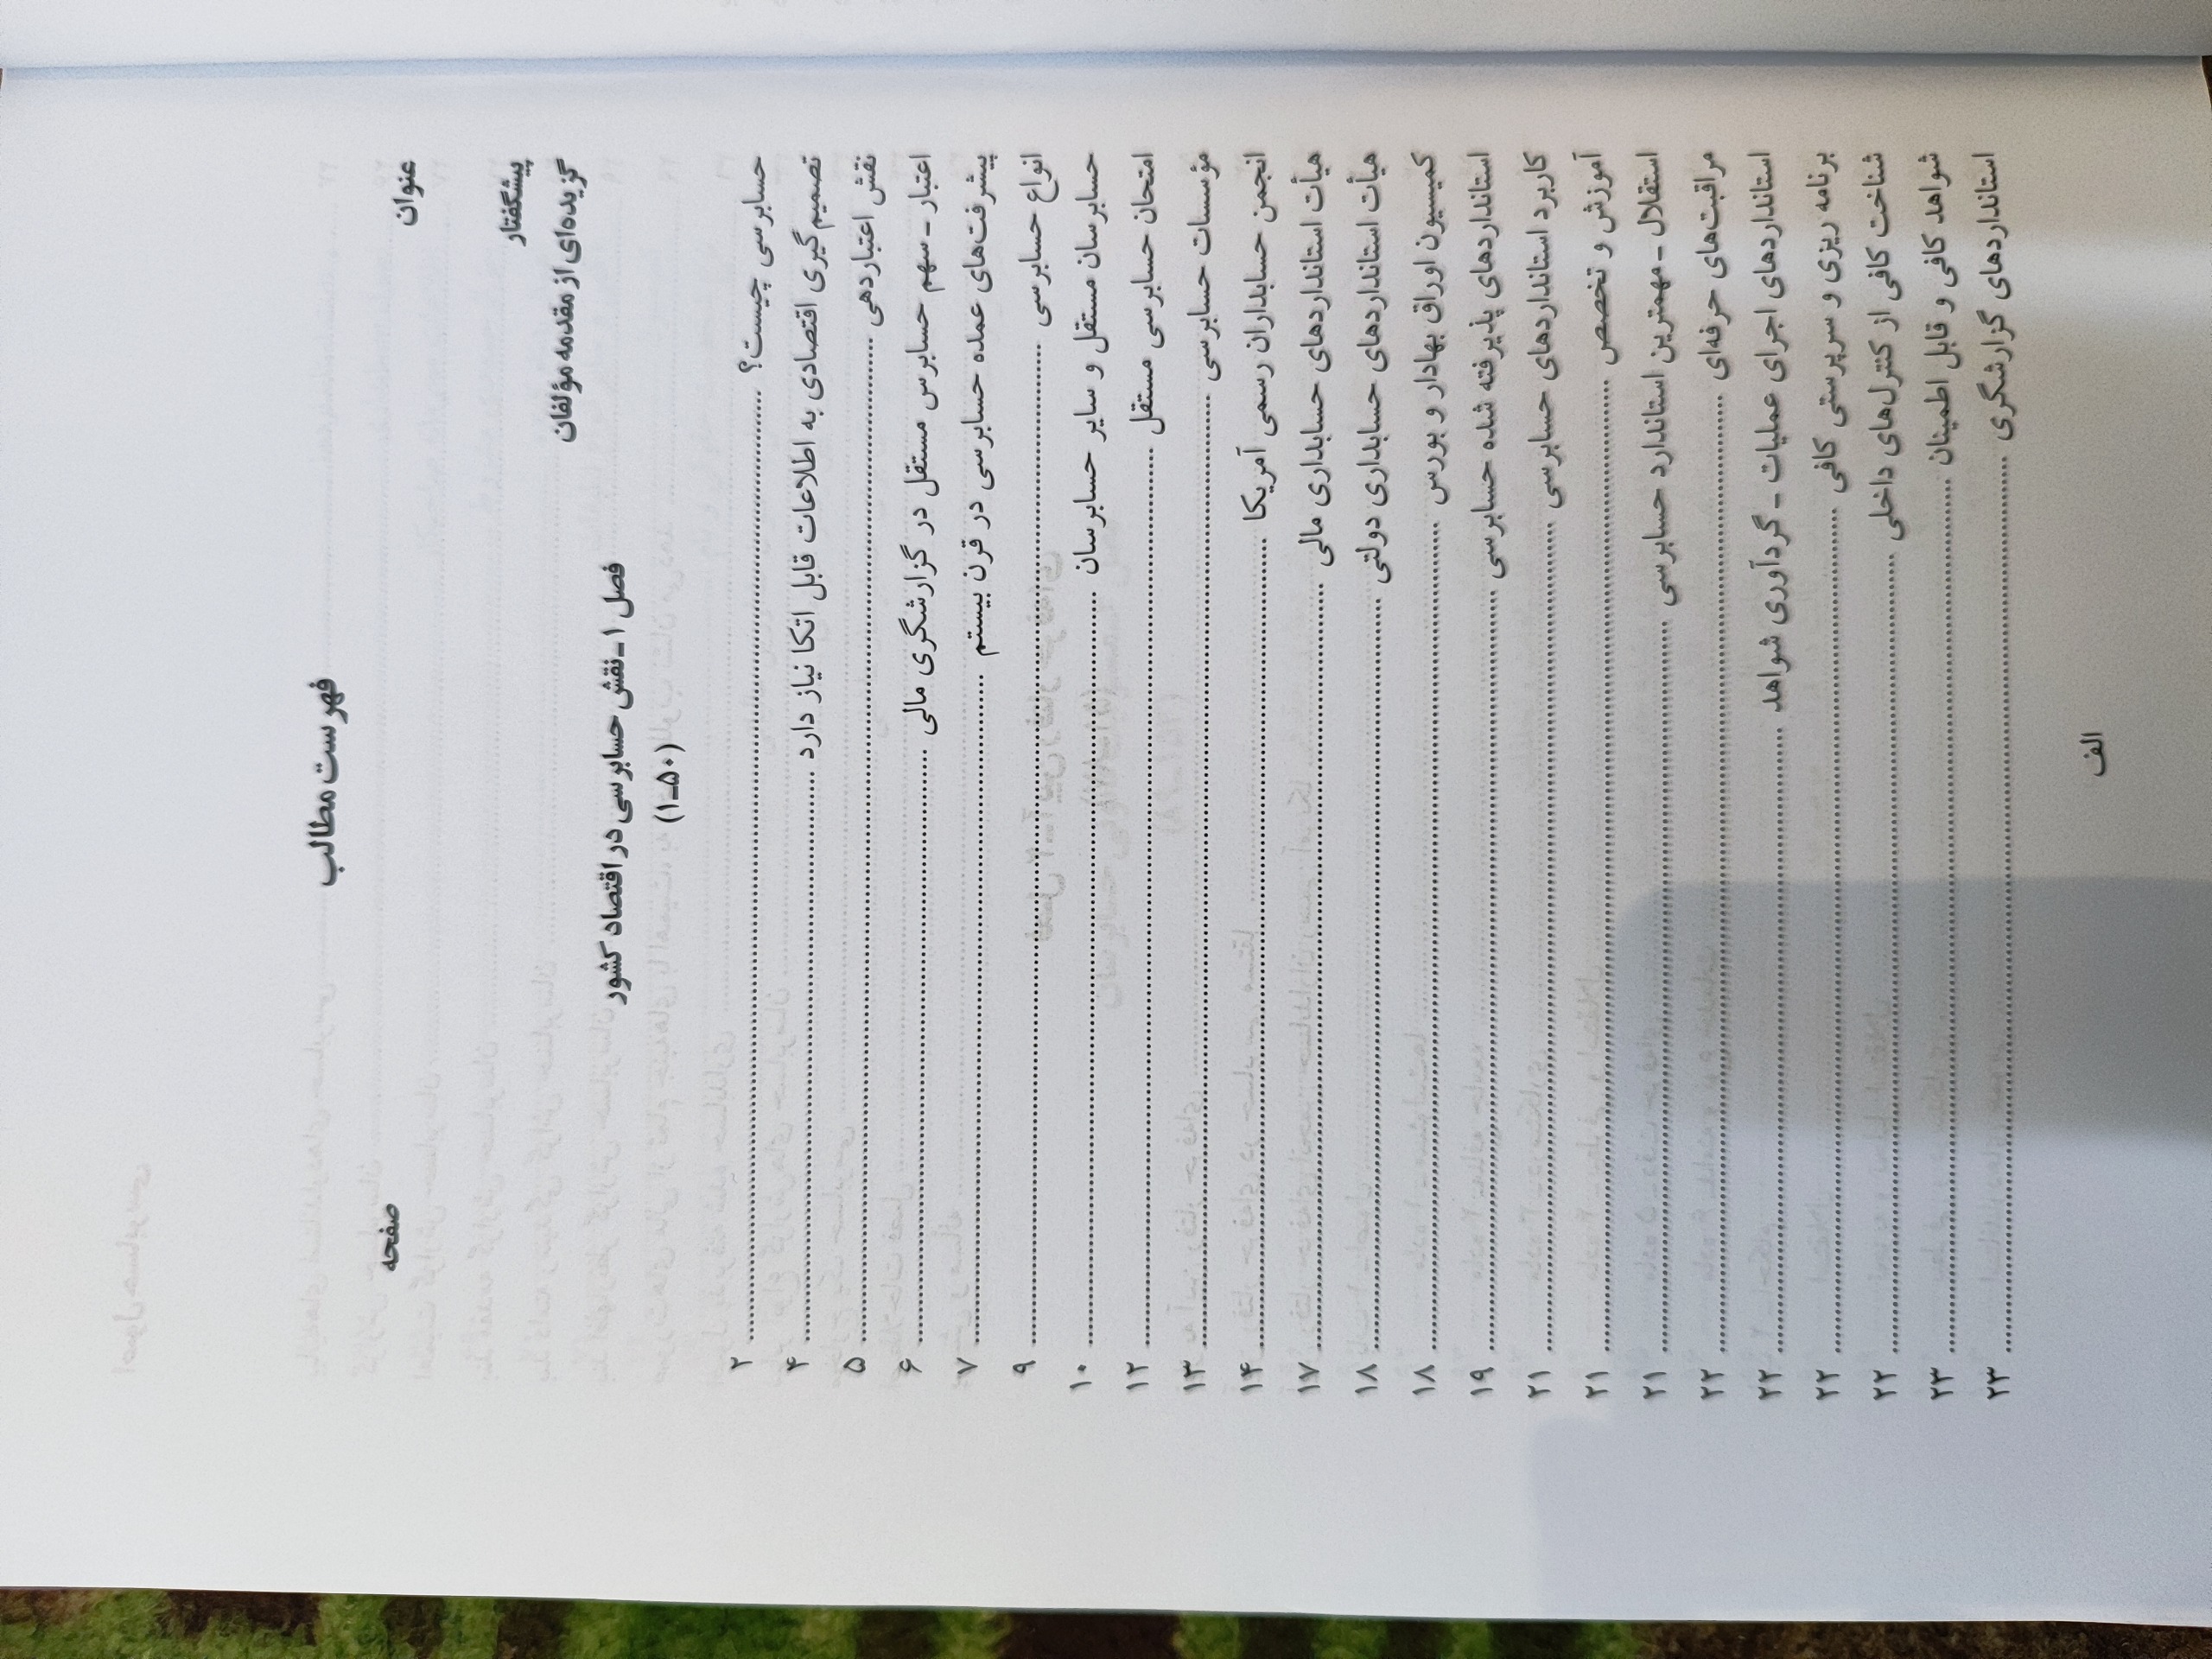 فهرست مطالب
عنوان صفحه
پیشگفتار
گزیده‌ای از مقدمه مؤلفان
فصل ۱ـ نقش حسابرسی در اقتصاد کشور
(۱ـ۵۰)
حسابرسی چیست؟ ........ ۲
تصمیم‌گیری اقتصادی به اطلاعات قابل اتکا نیاز دارد ........ ۴
نقش اعتباردهی ........ ۵
اعتبار ـ سهم حسابرس مستقل در گزارشگری مالی ........ ۶
پیشرفت‌های عمده حسابرسی در قرن بیستم ........ ۷
انواع حسابرسی ........ ۹
حسابرسان مستقل و سایر حسابرسان ........ ۱۰
امتحان حسابرسی مستقل ........ ۱۲
مؤسسات حسابرسی ........ ۱۳
انجمن حسابداران رسمی آمریکا ........ ۱۴
هیأت استانداردهای حسابداری مالی ........ ۱۷
هیأت استانداردهای حسابداری دولتی ........ ۱۸
کمیسیون اوراق بهادار و بورس ........ ۱۸
استانداردهای پذیرفته شده حسابرسی ........ ۱۹
کاربرد استانداردهای حسابرسی ........ ۲۱
آموزش و تخصص ........ ۲۱
استقلال ـ مهمترین استاندارد حسابرسی ........ ۲۱
مراقبت‌های حرفه‌ای ........ ۲۲
استانداردهای اجرای عملیات ـ گردآوری شواهد ........ ۲۲
برنامه ریزی و سرپرستی کافی ........ ۲۲
شناخت کافی از کنترل‌های داخلی ........ ۲۲
شواهد کافی و قابل اطمینان ........ ۲۳
استانداردهای گزارشگری ........ ۲۳
الف